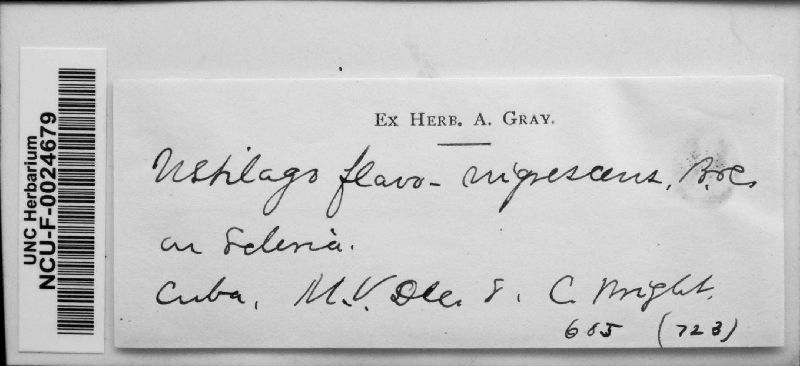 UNC Herbarium
NCU-F-0024679
Ex Herb. A. Gray.
Ustilago flavo-nigrescens, B.&C.
on Scleria.
Cuba, M.V. Dec. 8. C. Wright.
665 (723)